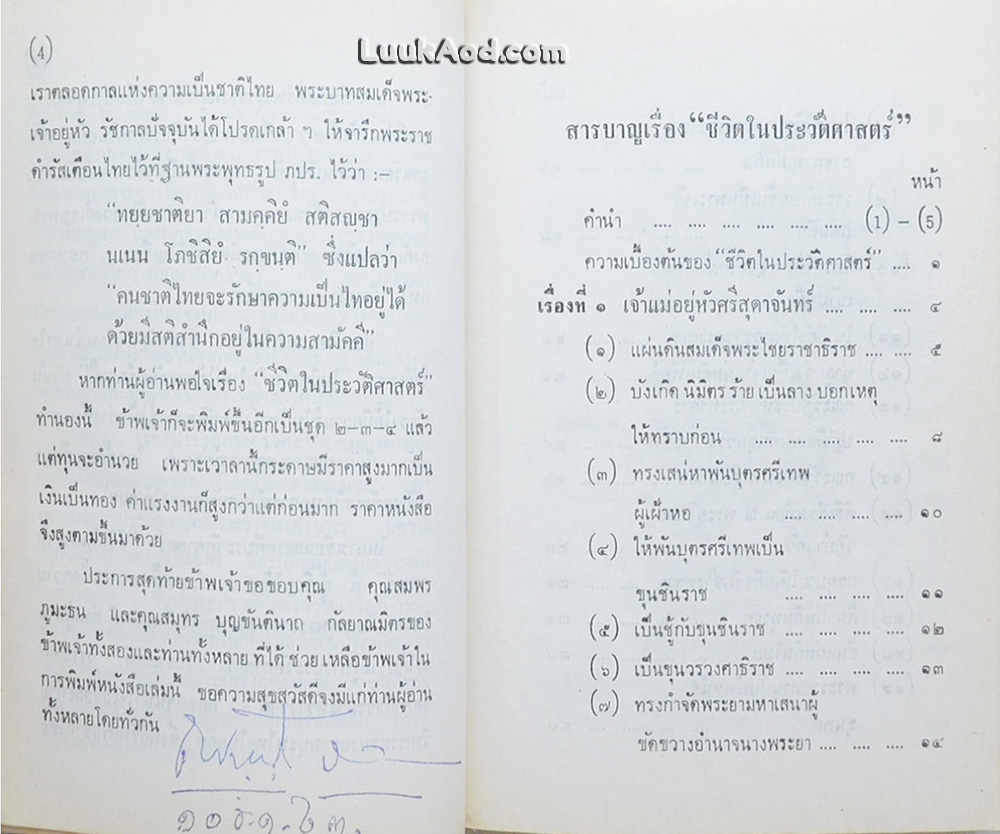 LuukAod.com
(4)
เราตลอดกาลแห่งความเป็นชาติไทย พระบาทสมเด็จพระ-
เจ้าอยู่หัว รัชกาลปัจจุบันได้โปรดเกล้า ๆ ให้จารึกพระราช
ดำรัสเตือนไทยไว้ที่ฐานพระพุทธรูป ภปร. ไว้ว่า :—
"ทยยชาติยา สามคฺคิยํ สติสญฺชา
นเนน โภชิสิยํ รกฺขนฺติ" ซึ่งแปลว่า
"คนชาติไทยจะรักษาความเป็นไทอยู่ได้
ด้วยมีสติสำนึกอยู่ในความสามัคคี"
หากท่านผู้อ่านพอใจเรื่อง "ชีวิตในประวัติศาสตร์"
ทำนองนี้ ข้าพเจ้าก็จะพิมพ์ขึ้นอีกเป็นชุด ๒-๓-๔ แล้ว
แต่ทุนจะอำนวย เพราะเวาลานี้กระดาษมีราคาสูงมากเป็น
เงินเป็นทอง ค่าแรงงานก็สูงกว่าแต่ก่อนมาก ราคาหนังสือ
จึงสูงตามขึ้นมาด้วย
ประการสุดท้ายข้าพเจ้าขอขอบคุณ คุณสมพร
ภูมะธน และคุณสมุทร บุญขันตินาถ กัลยาณมิตรของ
ข้าพเจ้าทั้งสองและท่านทั้งหลาย ที่ได้ ช่วย เหลือข้าพเจ้าใน
การพิมพ์หนังสือเล่มนี้ ขอความสุขสวัสดีจงมีแก่ท่านผู้อ่าน
ทั้งหลายโดยทั่วกัน
สารบาญเรื่อง "ชีวิตในประวัติศาสตร์"
หน้า
คำนำ .... .... .... .... .... (1) – (5)
ความเบื้องต้นของ "ชีวิตในประวัติศาสตร์" .... ๑
เรื่องที่ ๑ เจ้าแม่อยู่หัวศรีสุดาจันทร์ .... .... .... ๔
(๑) แผ่นดินสมเด็จพระไชยราชาธิราช .... .... ๕
(๒) บังเกิด นิมิตร ร้าย เป็นลาง บอกเหตุ
ให้ทราบก่อน .... .... .... .... ๘
(๓) ทรงเสน่หาพันบุตรศรีเทพ
ผู้เฝ้าหอ .... .... .... ๑๐
(๔) ให้พันบุตรศรีเทพเป็น
ขุนชินราช .... .... .... ๑๑
(๕) เป็นชู้กับขุนชินราช .... .... .... ๑๒
(๖) เป็นขุนวรวงศาธิราช .... .... .... ๑๓
(๗) ทรงกำจัดพระยามหาเสนาผู้
ขัดขวางอำนาจนางพระยา .... .... .... ๑๔